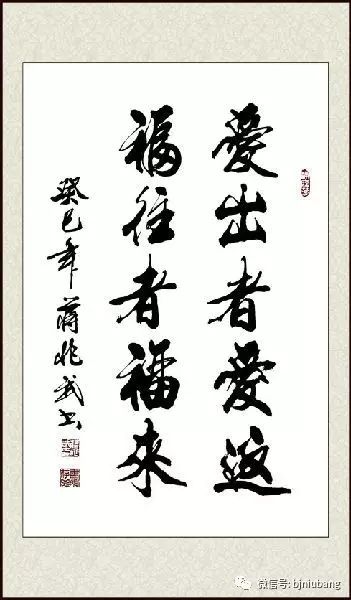 愛出者愛返
福往者福來
癸巳年蔣兆武书
微信号: bjniubang